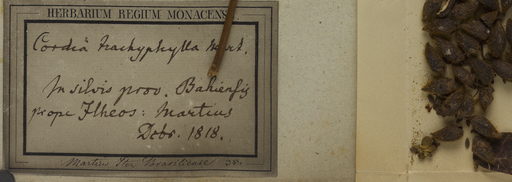 HERBARIUM REGIUM MONACENS
Cordia trachyphylla Mart.
In silvis prov. Bahiensis
prope Ilheos: Martius
Dcbr. 1818.
Martius Iter Brasiliense